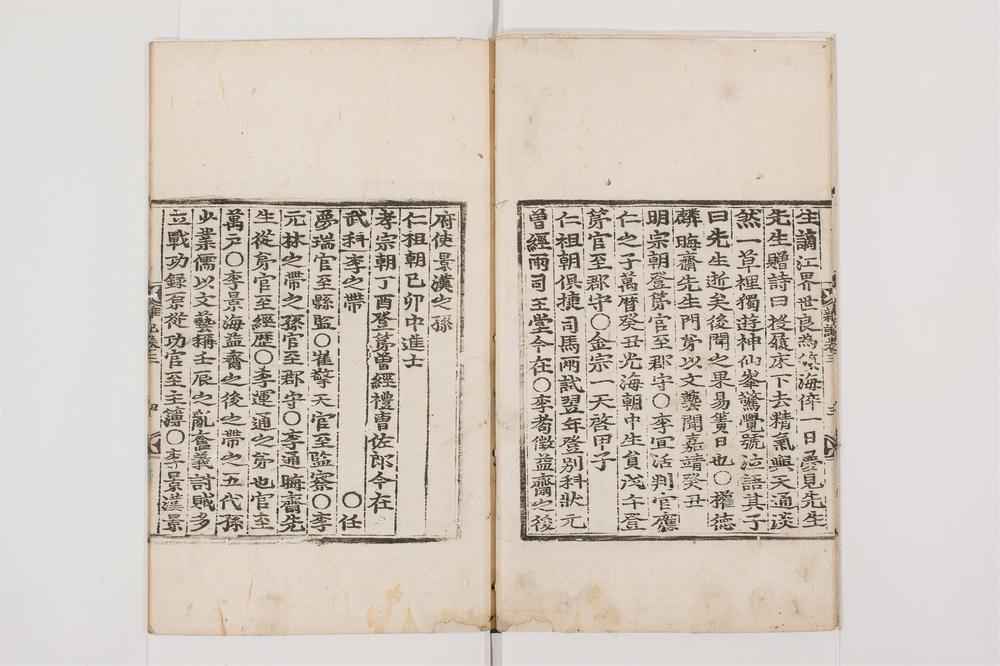 生謫江界世良為海倅一日憂見先生
先生贈詩曰投屐床下去精氣與天通淡
然一草裡獨遊神仙峯驚覺號泣語其子
曰先生逝矣後聞之果易簀日也○權德
麟晦齋先生門弟以文藝聞嘉靖癸丑
明宗朝登第官至郡守○李宜活判官應
仁之子萬曆癸丑光海朝中生員戊午登
第官至郡守○金宗一天啓甲子
仁祖朝俱捷司馬兩試翌年登別科狀元
曾經兩司玉堂今在○李耇徵益齋之後
府使景漢之孫
仁祖朝己卯中進士
孝宗朝丁酉登第曾經禮曹佐郎今在
武科李之帶 ○任
夢瑞官至縣監○崔擎天官至監察○李
元林之帶之孫官至郡守○李通晦齋先
生從弟官至經歷○李運通之弟也官至
萬戶○李景海益齋之後之帶之五代孫
少業儒以文藝稱壬辰之亂奮義討賊多
立戰功錄原從功官至主簿○李景漢景